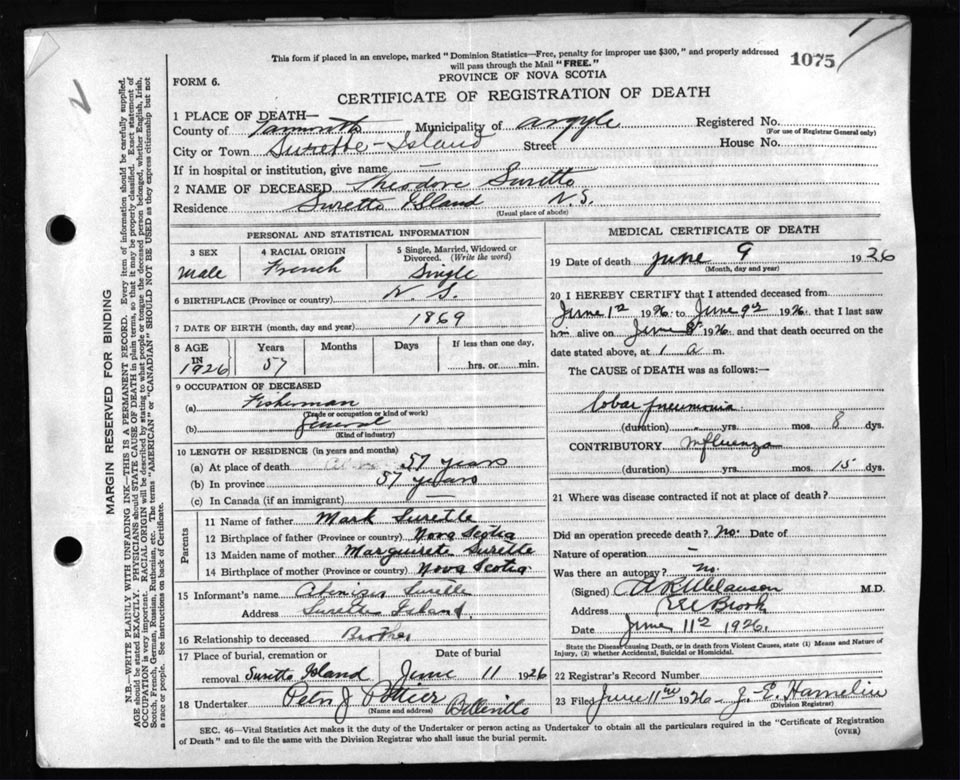 This form if placed in an envelope, marked "Dominion Statistics—Free, penalty for improper use $300," and properly addressed
will pass through the Mail "FREE."
1075
FORM 6.
PROVINCE OF NOVA SCOTIA
CERTIFICATE OF REGISTRATION OF DEATH
1 PLACE OF DEATH—
County of Yarmouth Municipality of Argyle Registered No.
(For use of Registrar General only)
City or Town Surette-Island Street House No.
If in hospital or institution, give name —
2 NAME OF DECEASED Theodore Surette
Residence Surette Island N.S.
(Usual place of abode)
PERSONAL AND STATISTICAL INFORMATION
3 SEX
male
4 RACIAL ORIGIN
French
5 Single, Married, Widowed or
Divorced. (Write the word)
Single
6 BIRTHPLACE (Province or country) N.S.
7 DATE OF BIRTH (month, day and year) 1869
8 AGE
IN
1926
Years
57
Months
Days
If less than one day,
hrs. or min.
9 OCCUPATION OF DECEASED
(a) Fisherman
(Trade or occupation or kind of work)
(b) General
(Kind of industry)
10 LENGTH OF RESIDENCE (in years and months)
(a) At place of death 57 years
(b) In province 57 years
(c) In Canada (if an immigrant) —
Parents
11 Name of father Mark Surette
12 Birthplace of father (Province or country) Nova Scotia
13 Maiden name of mother Marguirete Surette
14 Birthplace of mother (Province or country) Nova Scotia
15 Informant's name Surette
Address Surette Island
16 Relationship to deceased Brother
17 Place of burial, cremation or Date of burial
removal Surette Island June 11 1926
18 Undertaker Peter J Pottier Belleville
(Name and address)
MEDICAL CERTIFICATE OF DEATH
19 Date of death June 9 1926
(Month, day and year)
20 I HEREBY CERTIFY that I attended deceased from
June 1st 1926 to June 9th 1926, that I last saw
him alive on June 8 1926 and that death occurred on the
date stated above, at 1 a m.
The CAUSE of DEATH was as follows:—
Lobar pneumonia
(duration) yrs. mos. 8 dys.
CONTRIBUTORY Influenza
(duration) yrs. mos. 15 dys.
21 Where was disease contracted if not at place of death?
Did an operation precede death? No. Date of
Nature of operation —
Was there an autopsy? no.
(Signed) M.D.
Address Eel Brook
Date June 11th 1926.
State the Disease causing Death, or in death from Violent Causes, state (1) Means and Nature of
Injury, (2) whether Accidental, Suicidal or Homicidal.
22 Registrar's Record Number
23 Filed June 11th 1926 J. E. Hamelin
(Division Registrar)
SEC. 46—Vital Statistics Act makes it the duty of the Undertaker or person acting as Undertaker to obtain all the particulars required in the "Certificate of Registration
of Death" and to file the same with the Division Registrar who shall issue the burial permit.
(OVER)
MARGIN RESERVED FOR BINDING
N.B.—WRITE PLAINLY WITH UNFADING INK—THIS IS A PERMANENT RECORD. Every item of information should be carefully supplied.
AGE should be stated EXACTLY. PHYSICIANS should STATE CAUSE OF DEATH in plain terms, so that it may be properly classified. Exact statement of
OCCUPATION is very important. RACIAL ORIGIN will be described by stating to what people or tongue the deceased person belonged, whether English, Irish,
Scotch, French, German, Russian, Ruthenian, etc. The terms "AMERICAN" or "CANADIAN" SHOULD NOT BE USED as they express citizenship but not
a race or people. See instructions on back of Certificate.